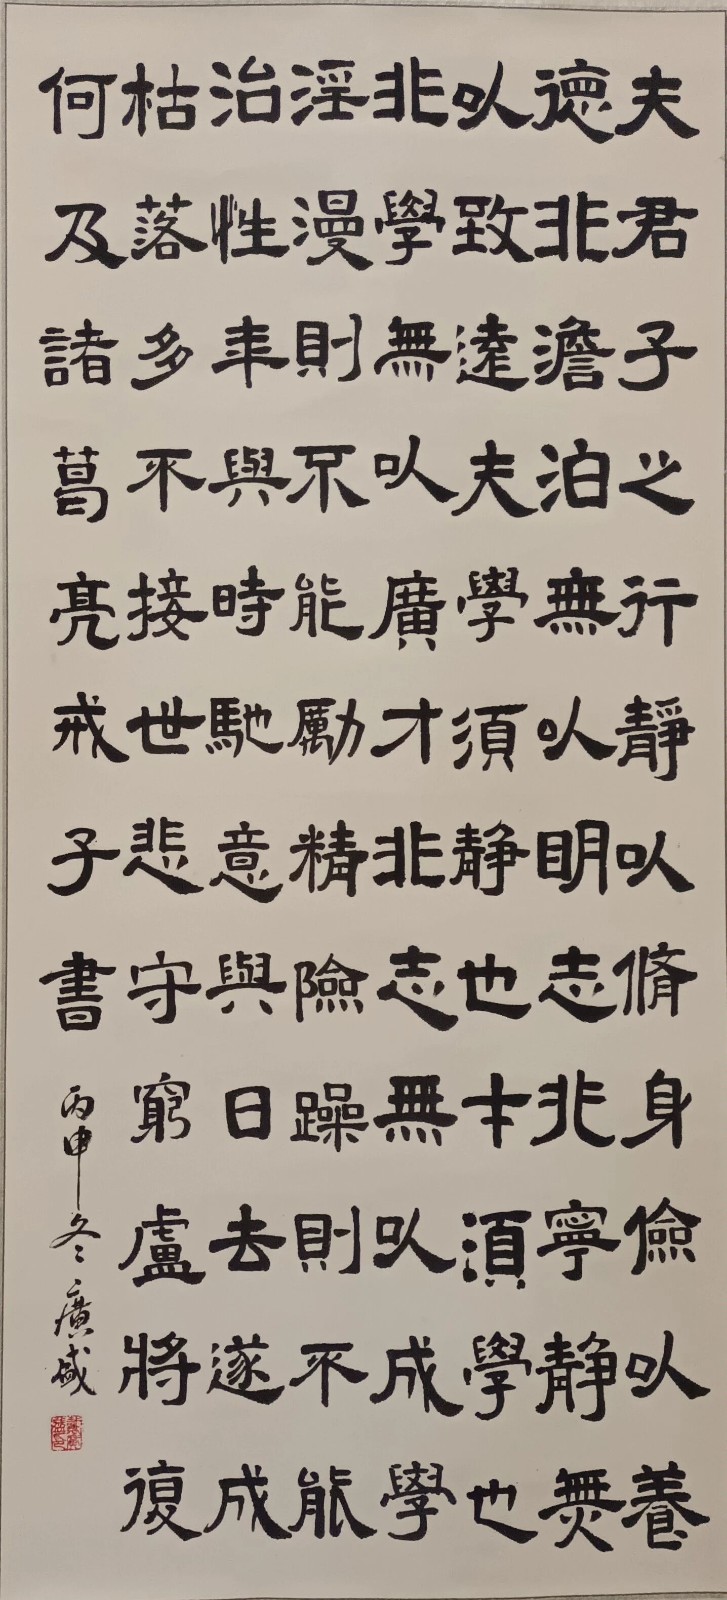 夫君子之行靜以脩身儉以養
德非澹泊無以明志非寧静無
以致遠夫學須静也才須學也
非學無以廣才非志無以成學
淫漫則不能勵精險躁則不能
治性年與時馳意與日去遂成
枯落多不接世悲守窮盧將復
何及諸葛亮戒子書
丙申冬廣盛